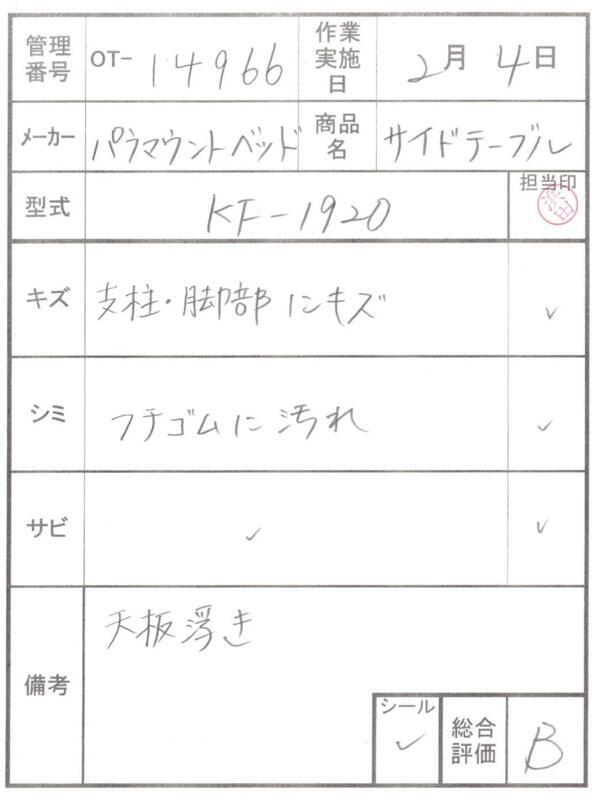 管理番号 OT- 14966 作業実施日 2月 4日
メーカー パラマウントベッド 商品名 サイドテーブル
型式 KF-1920 担当印
キズ 支柱・脚部にキズ ✓
シミ フチゴムに汚れ ✓
サビ ✓ ✓
備考 天板浮き
シール ✓ 総合評価 B